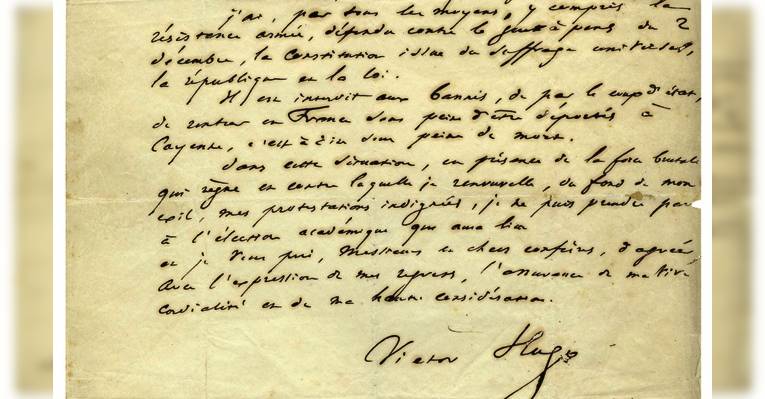 j'ai, par tous les moyens, y compris la
résistance armée, défendu contre le guet-à-pens du 2
décembre, la Constitution issue du suffrage universel,
la république et la loi.
Il est interdit aux bannis, de par le coup d'état,
de rentrer en France sous peine d'être déportés à
Cayenne, c'est à dire sous peine de mort.
Dans cette situation, en présence de la force brutale
qui règne et contre laquelle je renouvelle, du fond de mon
exil, mes protestations indignées, je ne puis prendre part
à l'élection académique qui aura lieu
et je vous prie, Messieurs et chers confrères, d'agréer
avec l'expression de mes regrets, l'assurance de ma vive
cordialité et de ma haute considération.
Victor Hugo